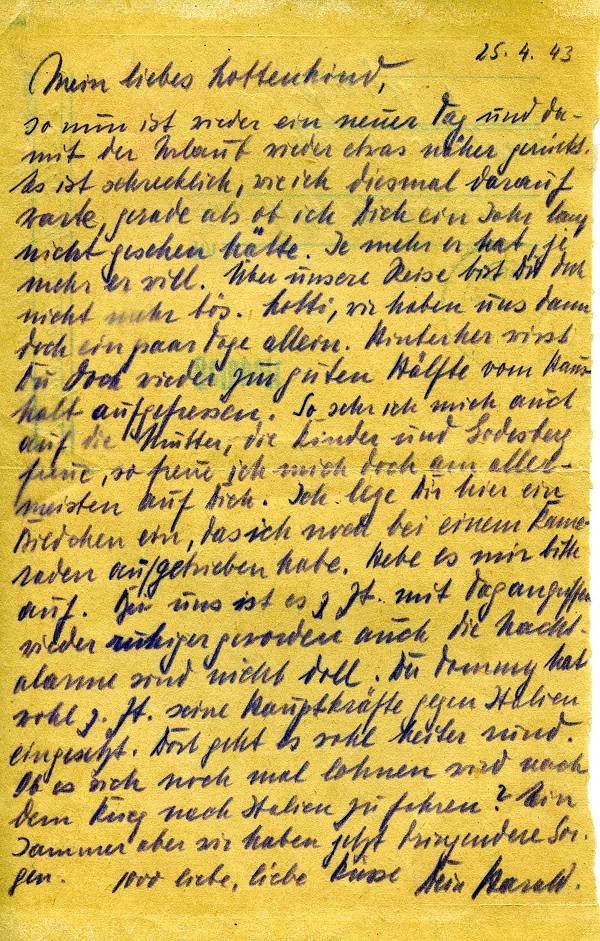 25. 4. 43
Mein liebes Lottenkind,
so nun ist wieder ein neuer Tag und da-
mit der Urlaub wieder etwas näher gerückt.
Es ist schrecklich, wie ich diesmal darauf
warte, gerade als ob ich Dich ein Jahr lang
nicht gesehen hätte. Je mehr er hat, je
mehr er will. Über unsere Reise bist Du doch
nicht mehr bös. Lotti, wir haben uns dann
doch ein paar Tage allein. Hinterher wirst
Du doch wieder zur guten Hälfte vom Haus-
halt aufgefressen. So sehr ich mich auch
auf die Mutter, die Kinder und Godesberg
freue, so freue ich mich doch am aller-
meisten auf Dich. Ich lege Dir hier ein
Liedchen ein, das ich noch bei einem Kame-
raden aufgetrieben habe. Hebe es mir bitte
auf. Bei uns ist es z. Zt. mit Tagangriffen
wieder ruhiger geworden auch die Nacht-
alarme sind nicht doll. Der Tommy hat
wohl z. Zt. seine Hauptkräfte gegen Italien
eingesetzt. Dort geht es wohl heiter rund.
Ob es sich noch mal lohnen wird nach
dem Krieg nach Italien zu fahren? Ein
Jammer aber wir haben jetzt dringendere Sor-
gen. 1000 liebe, liebe Küsse Dein Harald.